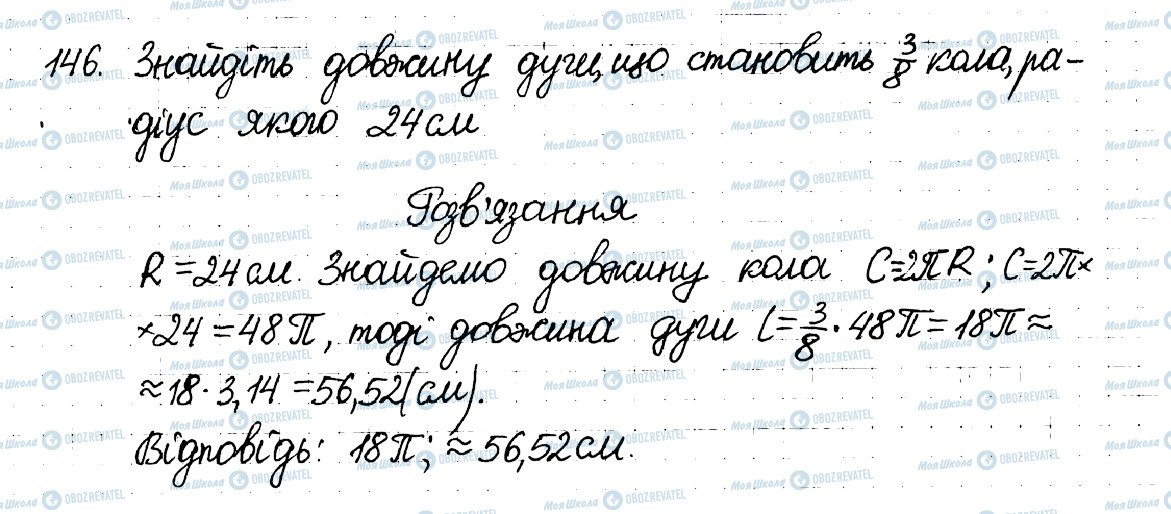 146. Знайдіть довжину дуги, що становить 3/8 кола, ра-
діус якого 24 см
Розв'язання
R = 24 см. Знайдемо довжину кола C=2πR; C=2π×
×24 = 48π, тоді довжина дуги l = 3/8 · 48π = 18π ≈
≈ 18 · 3,14 = 56,52 (см).
Відповідь: 18π; ≈ 56,52 см.